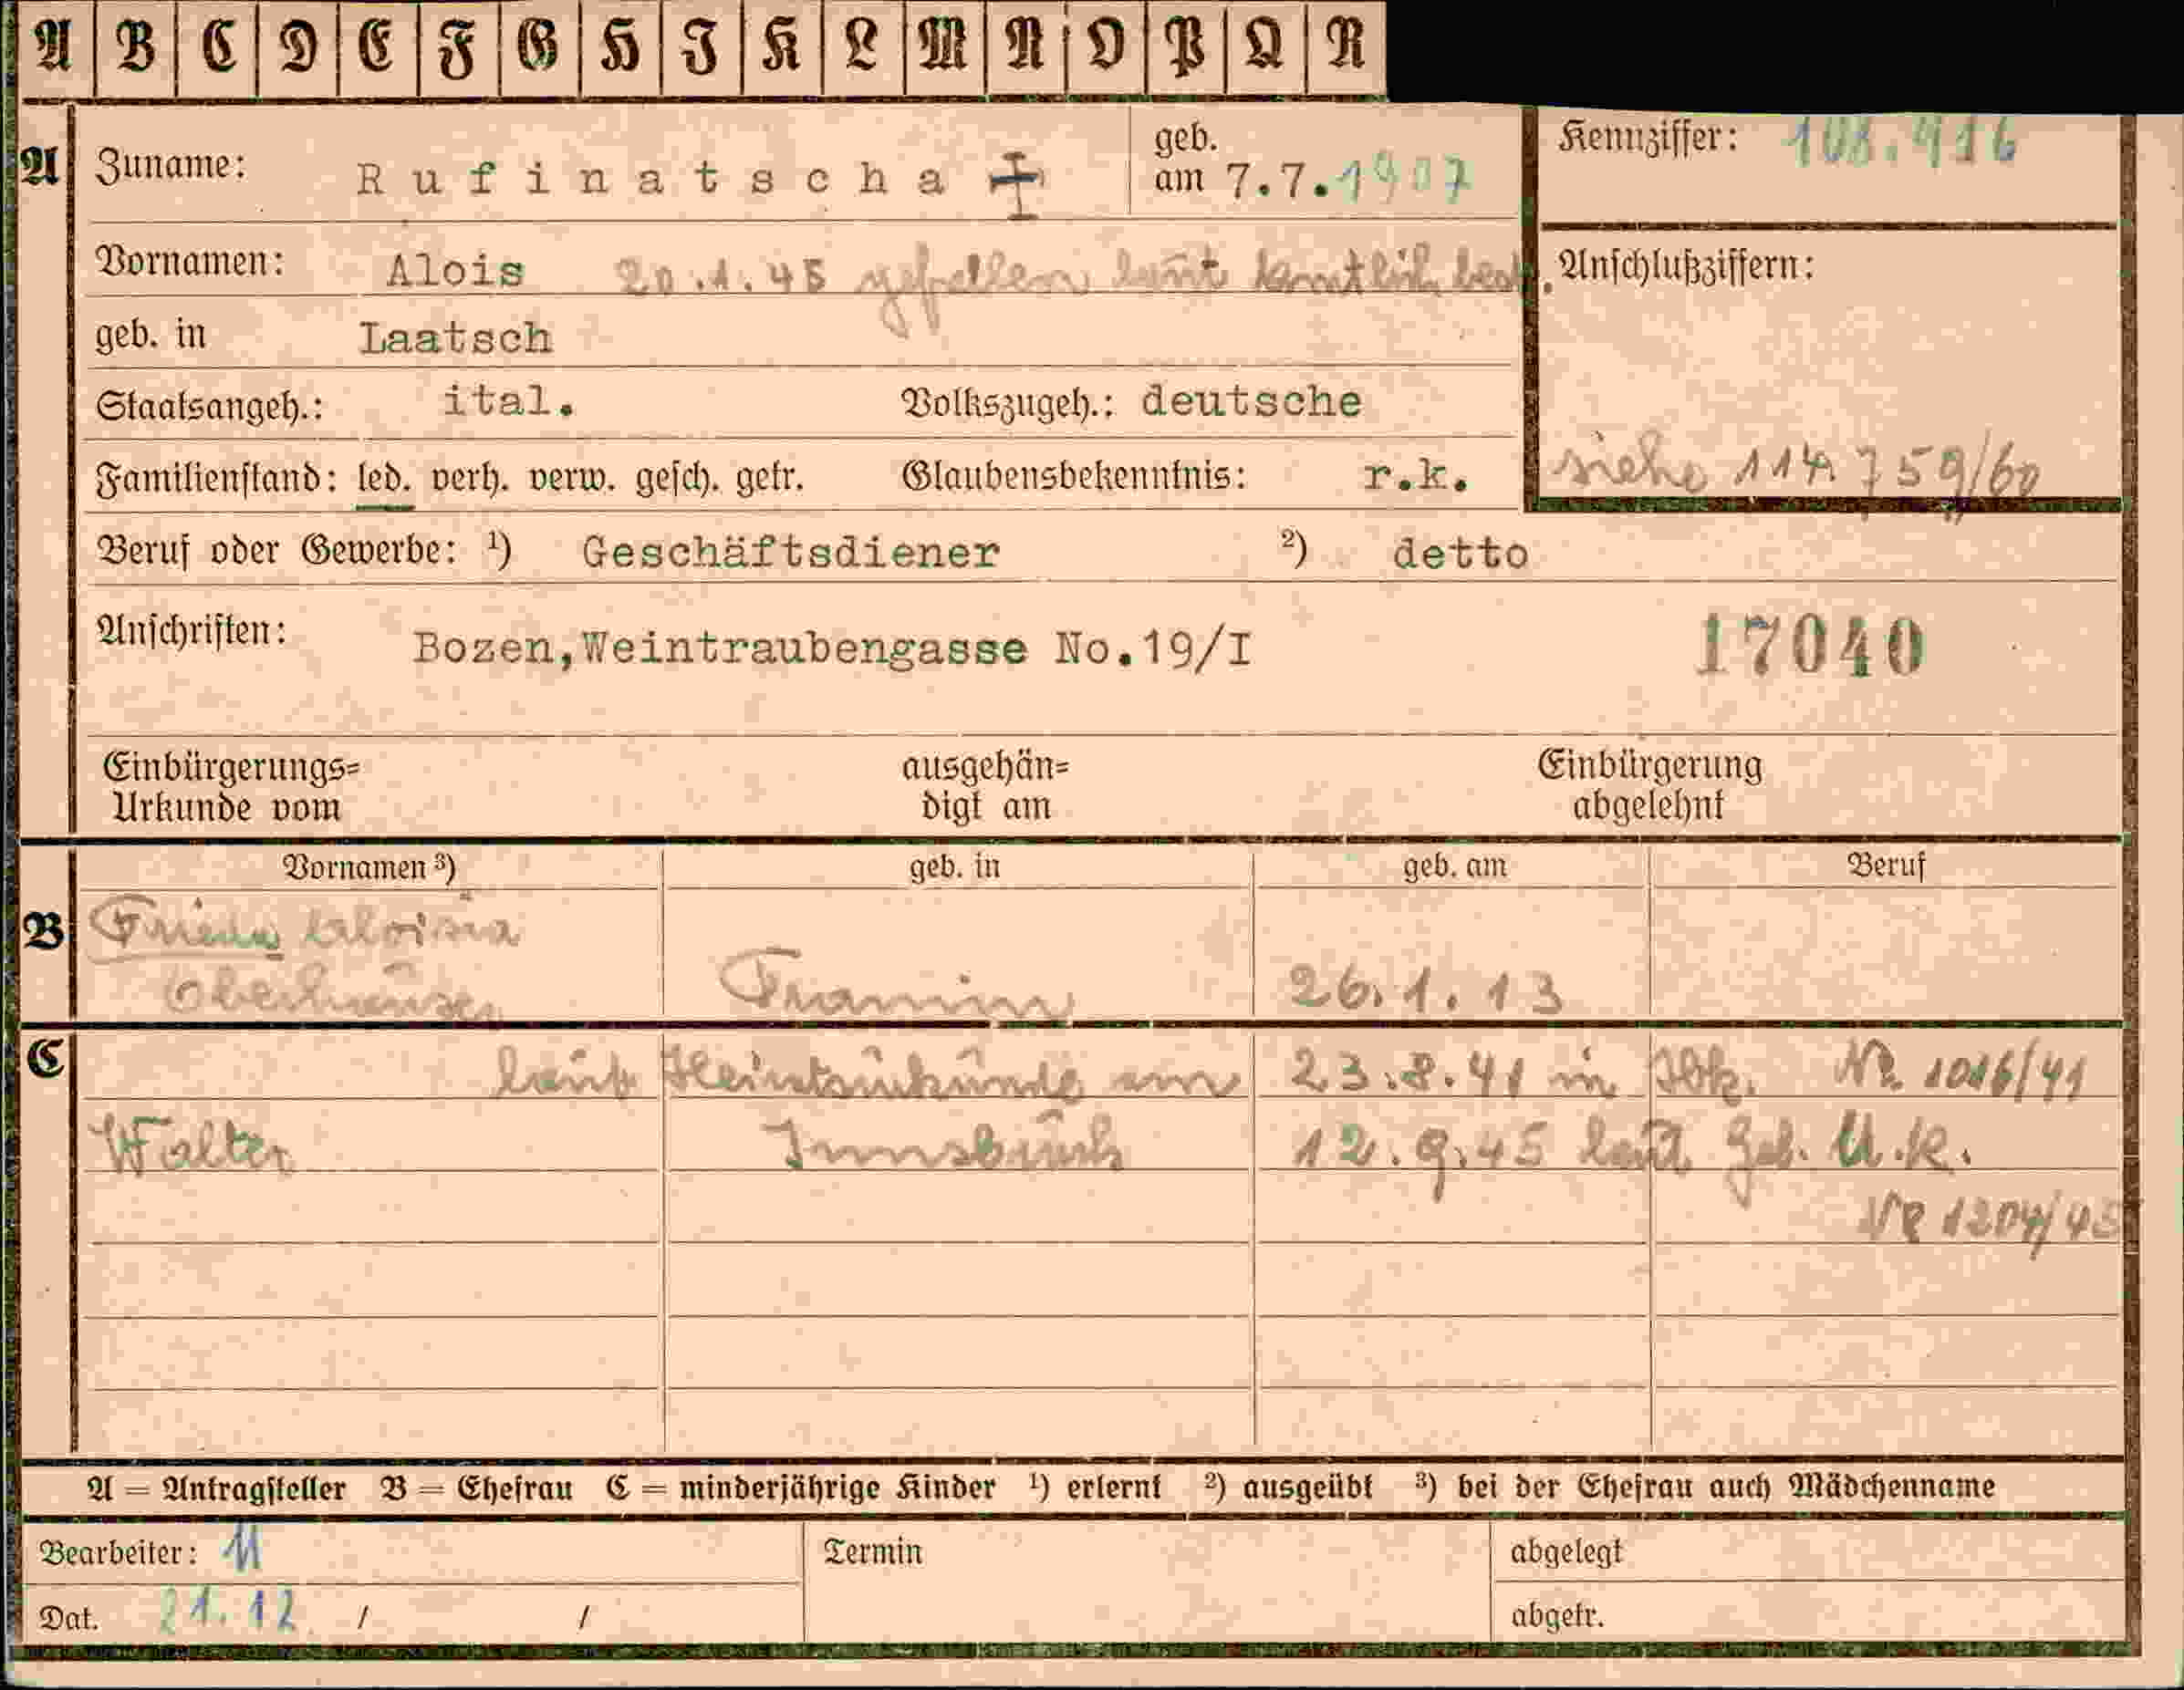 A B C D E F G H I K L M N O P Q R
A Zuname: Rufinatscha geb. am 7.7.1907 Kennziffer: 108.416
Vornamen: Alois 20.1.45 gefallen laut Anschlußziffern:
geb. in Laatsch
Staatsangeh.: ital. Volkszugeh.: deutsche
Familienstand: led. verh. verw. gesch. getr. Glaubensbekenntnis: r.k. siehe 114.759/60
Beruf oder Gewerbe: ¹) Geschäftsdiener ²) detto
Anschriften: Bozen,Weintraubengasse No.19/I 17040
Einbürgerungs= ausgehän= Einbürgerung
Urkunde vom digt am abgelehnt
Vornamen ³) geb. in geb. am Beruf
B Frieda Aloisia
Oberhauser Tramin 26.1.13
C laut Heiratsurkunde am 23.8.41 in Ibk. Nr. 1016/41
Walter Innsbruck 12.9.45 laut Geb. U.K.
Nr 1204/45
A = Antragsteller B = Ehefrau C = minderjährige Kinder ¹) erlernt ²) ausgeübt ³) bei der Ehefrau auch Mädchenname
Bearbeiter: 11 Termin abgelegt
Dat. 21.12 / / abgetr.